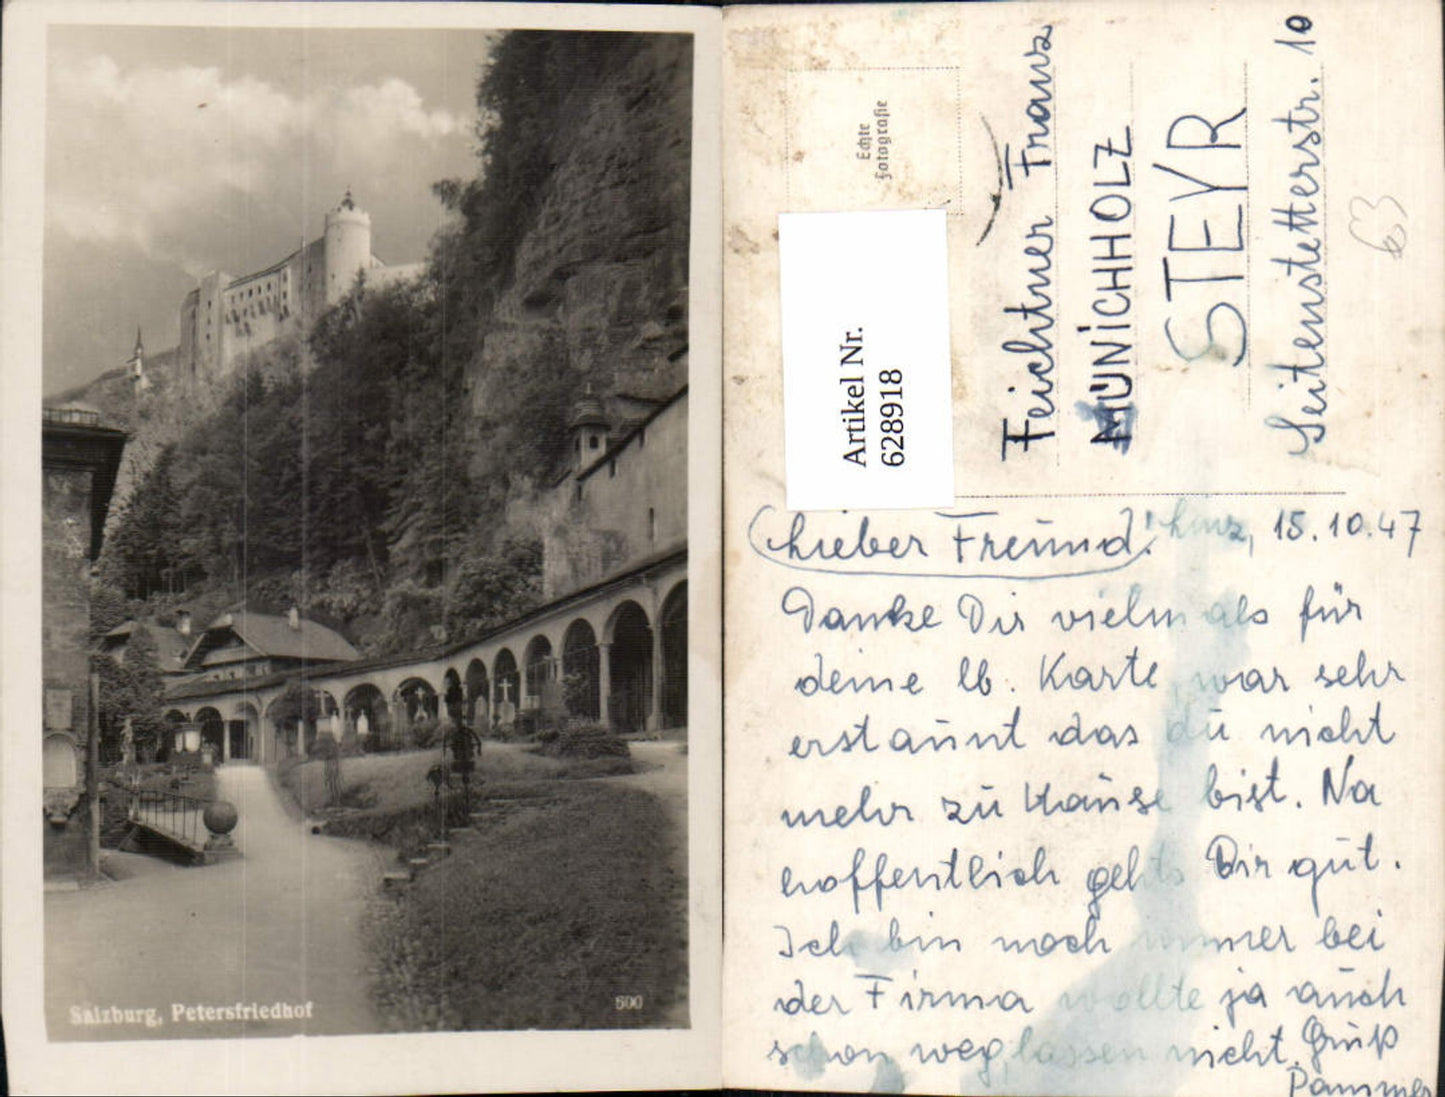 Salzburg, Petersfriedhof
500
Echte
Fotografie
Artikel Nr.
628918
Feichtner Franz
MÜNICHHOLZ
STEYR
Seitenstetterstr. 10
63
Lieber Freund! Linz, 15.10.47
Danke Dir vielmals für
deine lb. Karte, war sehr
erstaunt das du nicht
mehr zu Hause bist. Na
hoffentlich gehts Dir gut.
Ich bin noch immer bei
der Firma wollte ja auch
schon weg, lassen nicht. Gruß
Pammer